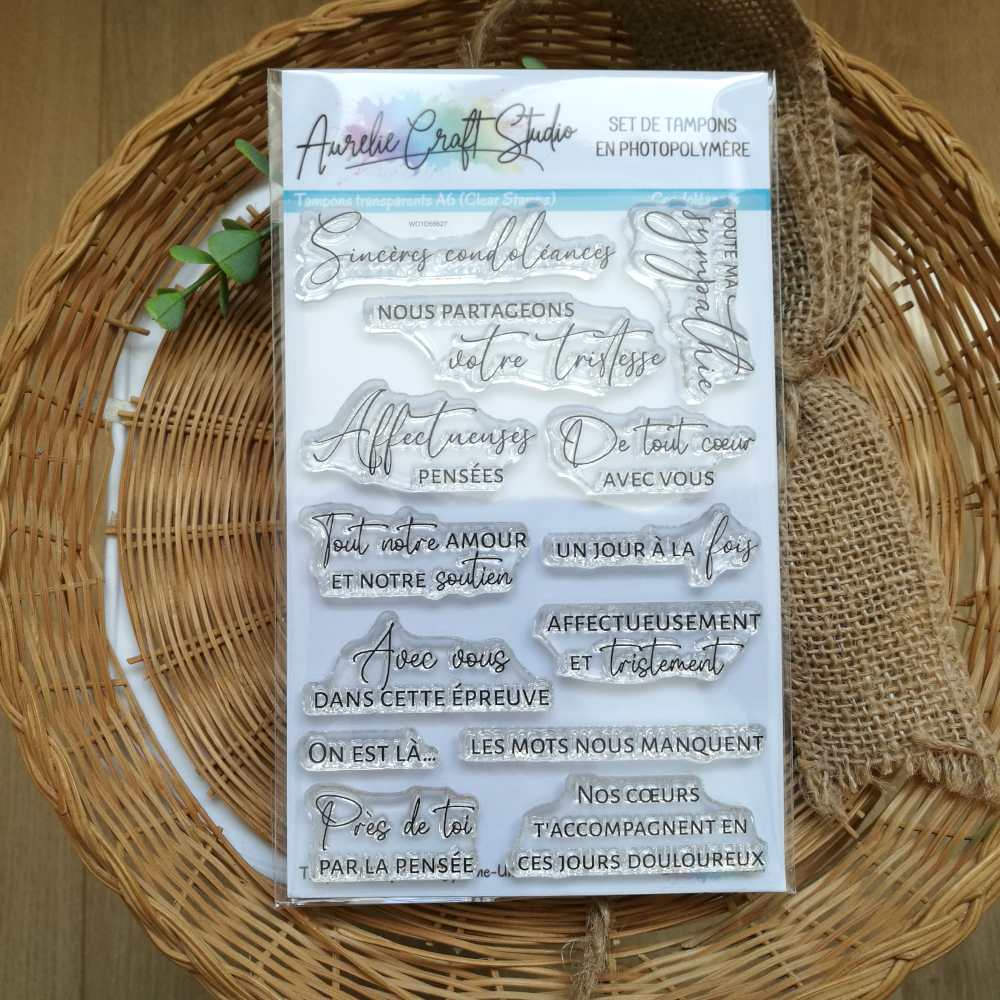 Aurelie Craft Studio
SET DE TAMPONS
EN PHOTOPOLYMÈRE
Tampons transparents A6 (Clear Stamps)
Condoléances
WO1D66627
Sincères condoléances
TOUTE MA
sympathie
NOUS PARTAGEONS
votre tristesse
Affectueuses
PENSÉES
De tout cœur
AVEC VOUS
Tout notre AMOUR
ET NOTRE soutien
UN JOUR À LA fois
AFFECTUEUSEMENT
ET tristement
Avec vous
DANS CETTE ÉPREUVE
ON EST LÀ...
LES MOTS NOUS MANQUENT
Près de toi
PAR LA PENSÉE
NOS CŒURS
T'ACCOMPAGNENT EN
CES JOURS DOULOUREUX